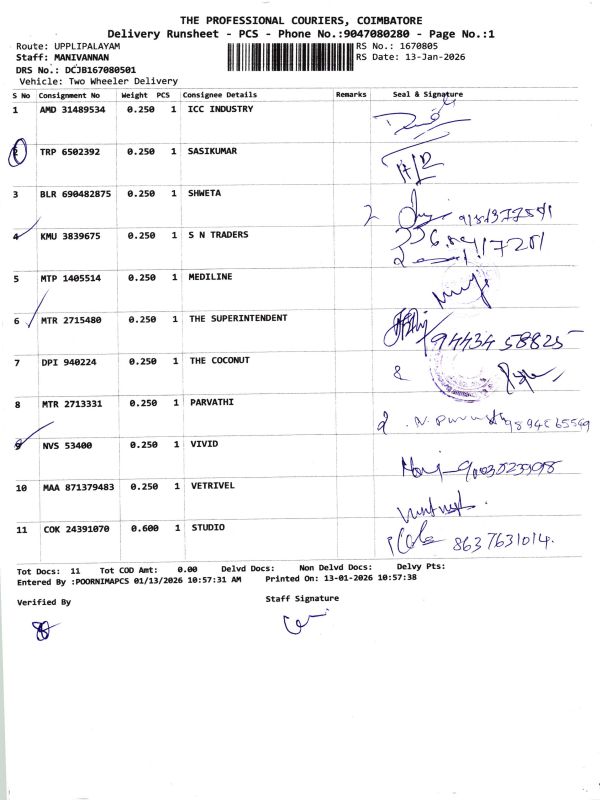 THE PROFESSIONAL COURIERS, COIMBATORE
Delivery Runsheet - PCS - Phone No.:9047080280 - Page No.:1
Route: UPPLIPALAYAM RS No.: 1670805
Staff: MANIVANNAN RS Date: 13-Jan-2026
DRS No.: DCJB167080501
Vehicle: Two Wheeler Delivery
S No Consignment No Weight PCS Consignee Details Remarks Seal & Signature
1 AMD 31489534 0.250 1 ICC INDUSTRY
2 TRP 6502392 0.250 1 SASIKUMAR
3 BLR 690482875 0.250 1 SHWETA
4 KMU 3839675 0.250 1 S N TRADERS
5 MTP 1405514 0.250 1 MEDILINE
6 MTR 2715480 0.250 1 THE SUPERINTENDENT 94434 58825
7 DPI 940224 0.250 1 THE COCONUT
8 MTR 2713331 0.250 1 PARVATHI
9 NVS 53400 0.250 1 VIVID
10 MAA 871379483 0.250 1 VETRIVEL
11 COK 24391070 0.600 1 STUDIO 8637631014.
Tot Docs: 11 Tot COD Amt: 0.00 Delvd Docs: Non Delvd Docs: Delvy Pts:
Entered By :POORNIMAPCS 01/13/2026 10:57:31 AM Printed On: 13-01-2026 10:57:38
Verified By Staff Signature